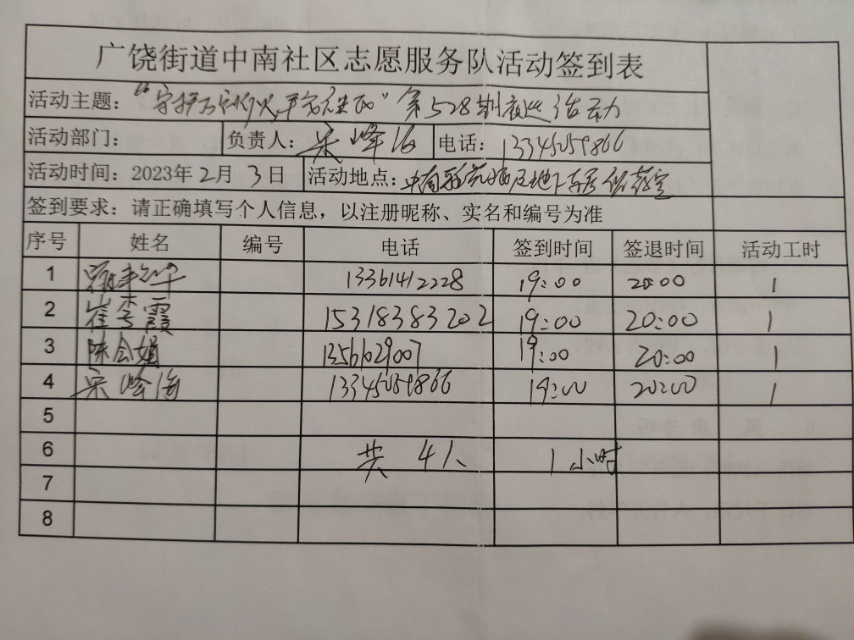 广饶街道中南社区志愿服务队活动签到表
活动主题：“守护万家 平安 ” 第528期夜巡活动
活动部门： 负责人：宋峰海 电话：13345059866
活动时间：2023年2月3日 活动地点：中南
签到要求：请正确填写个人信息，以注册昵称、实名和编号为准
序号 姓名 编号 电话 签到时间 签退时间 活动工时
1 13361412228 19:00 20:00 1
2 崔秀霞 15318383202 19:00 20:00 1
3 陈会娟 1356029007 19:00 20:00 1
4 宋峰海 13345059866 19:00 20:00 1
5
6 共4人 1小时
7
8